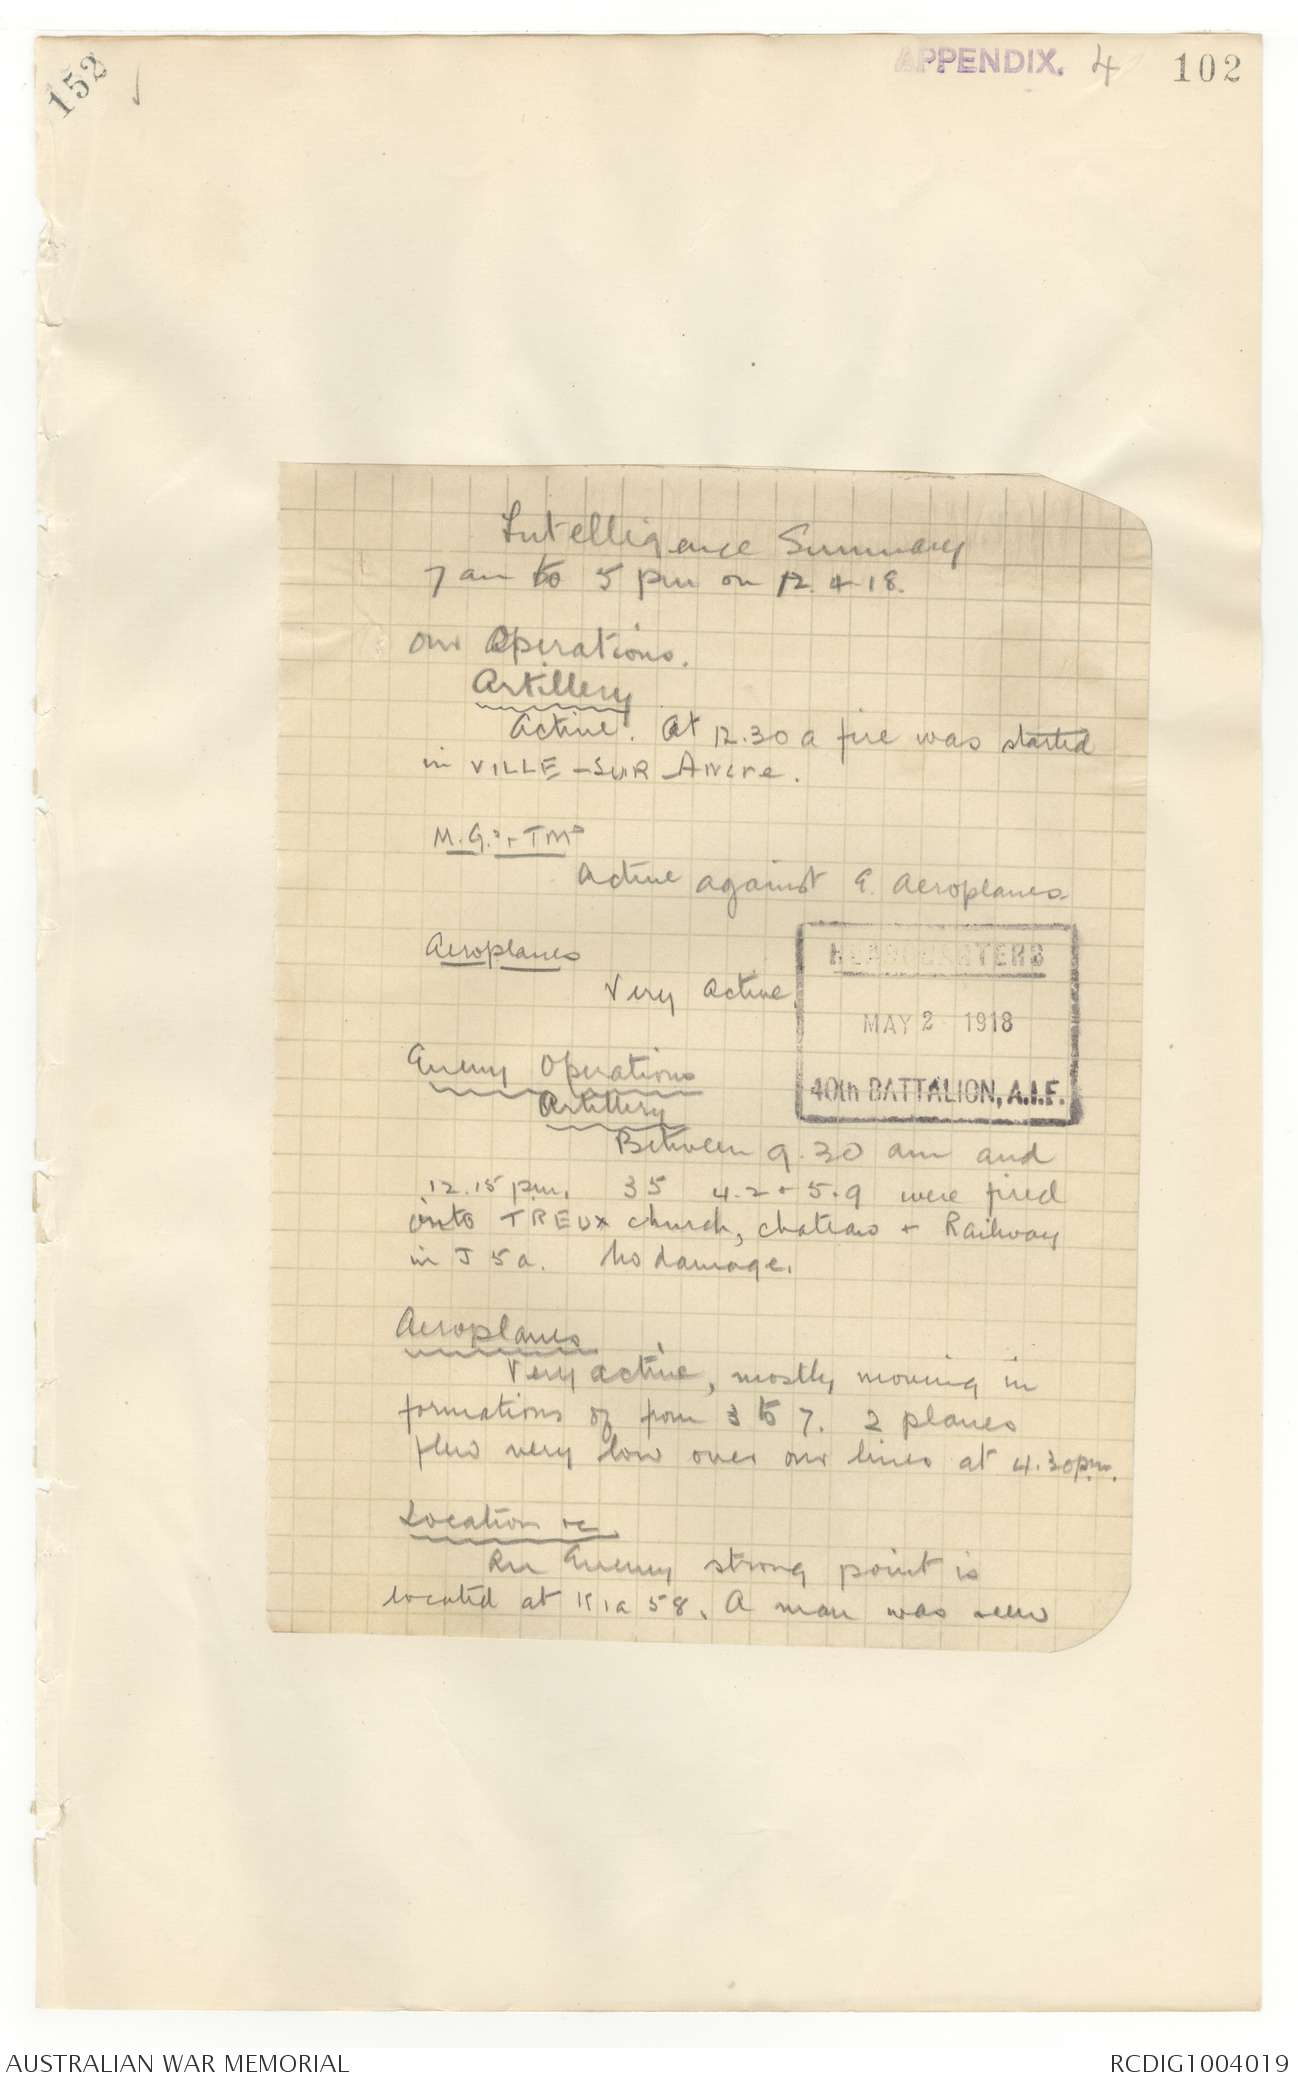 152
APPENDIX. 4 102
Intelligence Summary
7 am to 5 pm on 12.4.18.
Our Operations.
Artillery
Active. At 12.30 a fire was started
in VILLE-SUR-Ancre.
M.G.s + TMs
Active against E. Aeroplanes
Aeroplanes
Very Active
HEADQUARTERS
MAY 2 1918
40th BATTALION, A.I.F.
Enemy Operations
Artillery
Between 9.30 am and
12.15 pm. 35 4.2 + 5.9 were fired
into TREUX church, chateau + Railway
in J 5 a. No damage.
Aeroplanes
Very active, mostly moving in
formations of from 3 to 7. 2 planes
flew very low over our lines at 4.30pm.
Location &c
An Enemy strong point is
located at K1a 58. A man was seen
AUSTRALIAN WAR MEMORIAL
RCDIG1004019